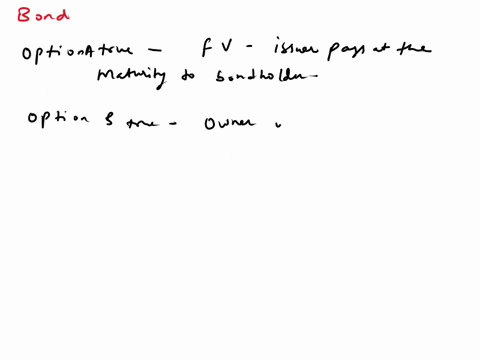 Bond
Option A true - FV - issuer pays at the
maturity to bondholder -
Option B true - Owner